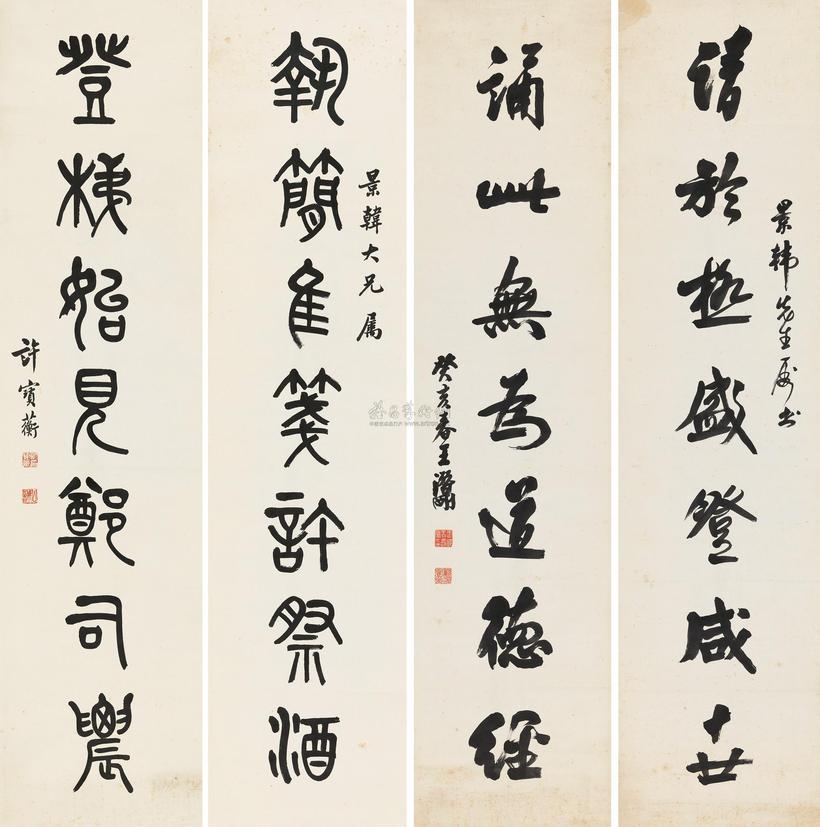 景韓先生屬書
請於極盛鐙咸
誦此無為道德經
癸亥春王
景韓大兄屬
執簡隹箋許祭酒
登梯始見鄭司農
許寶蘅